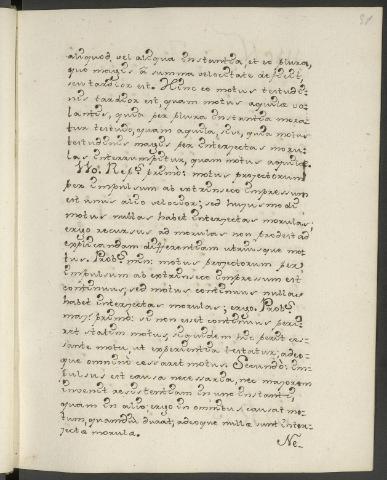 31
aliquod, vel aliqua instantia, et eo plura,
quo magis à summa velocitate deficit,
seu tardior est. Hinc eo motus testudi-
nis tardior est, quam motus aquilae vo-
lantis, quia per plura instantia mora-
tur testudo, quam aquila, sive, quia motus
testudinis magis per interjectas moru-
las interrumpitur, quam motus aquilae.
110. Resp. primò: motus projectorum
per impulsum ab extrinseco impressum
est unus alio velocior; sed hujusmodi
motus nullas habet interjectas morulas;
ergo recursus ad morulas non prodest ad
explicandam differentiam utriusque mo-
tus. Prob. min: motus projectorum per
impulsum ab extrinseco impressum est
continuus, sed motus continuus nullas
habet interjectas morulas; ergo. Prob.
maj. primò: si non esset continuus peri-
ret statim motus, siquidem
sante motu, ut experientia testatur; adeo-
que omninò cessaret motus. Secundò: im-
pulsus est causa necessaria, nec majorem
invenit resistentiam in uno instanti,
quam in alio; ergo in omnibus causat mo-
tum, quamdiu durat, adeoque nullae sunt inter-
jectae morulae.
Ne-